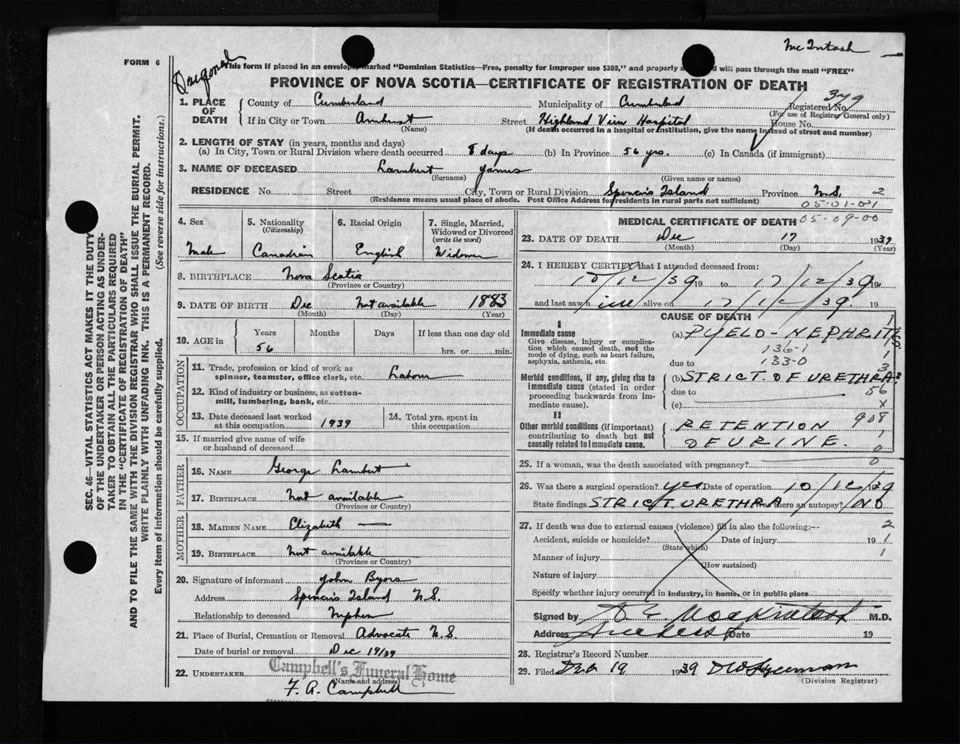 McIntosh
FORM 6
This form if placed in an envelope marked "Dominion Statistics—Free, penalty for improper use $300," and properly addressed will pass through the mail "FREE"
PROVINCE OF NOVA SCOTIA—CERTIFICATE OF REGISTRATION OF DEATH
1. PLACE OF DEATH
County of Cumberland Municipality of Cumberland Registered No. 349
(For use of Registrar General only)
If in City or Town Amherst Street Highland View Hospital House No.
(Name) (If death occurred in a hospital or institution, give the name instead of street and number)
2. LENGTH OF STAY (in years, months and days)
(a) In City, Town or Rural Division where death occurred 8 days (b) In Province 56 yrs. (c) In Canada (if immigrant)
3. NAME OF DECEASED Lambert James
(Surname) (Given name or names)
RESIDENCE No. Street City, Town or Rural Division Spencer's Island Province N.S. 2
(Residence means usual place of abode. Post Office Address for residents in rural parts not sufficient) 05-01-01
05-09-00
4. Sex
Male
5. Nationality
(Citizenship)
Canadian
6. Racial Origin
English
7. Single, Married, Widowed or Divorced
(write the word)
Widower
8. BIRTHPLACE Nova Scotia
(Province or Country)
9. DATE OF BIRTH Dec Not available 1883
(Month) (Day) (Year)
10. AGE in Years Months Days If less than one day old
56 hrs. or min.
OCCUPATION
11. Trade, profession or kind of work as spinner, teamster, office clerk, etc. Labour
12. Kind of industry or business, as cotton-mill, lumbering, bank, etc.
13. Date deceased last worked at this occupation 1939
14. Total yrs. spent in this occupation
15. If married give name of wife or husband of deceased
FATHER
16. NAME George Lambert
17. BIRTHPLACE Not available
(Province or Country)
MOTHER
18. MAIDEN NAME Elizabeth —
19. BIRTHPLACE Not available
(Province or Country)
20. Signature of informant John Byers
Address Spencer's Island N.S.
Relationship to deceased Nephew
21. Place of Burial, Cremation or Removal Advocate N.S.
Date of burial or removal Dec 19/39
22. UNDERTAKER Campbell's Funeral Home
(Name and address)
F. A. Campbell
MEDICAL CERTIFICATE OF DEATH
23. DATE OF DEATH Dec 17 1939
(Month) (Day) (Year)
24. I HEREBY CERTIFY that I attended deceased from:
10/12/39 19 to 17/12/39 19
and last saw him alive on 17/12/39 19
CAUSE OF DEATH
I
Immediate cause
Give disease, injury or complication which caused death, not the mode of dying, such as heart failure, asphyxia, asthenia, etc.
(a) PYELO-NEPHRITIS
136-1
133-0
due to
Morbid conditions, if any, giving rise to immediate cause (stated in order proceeding backwards from immediate cause).
(b) STRICT. OF URETHRA
due to 56
(c) x
II
Other morbid conditions (if important) contributing to death but not causally related to immediate cause.
RETENTION 908
OF URINE.
25. If a woman, was the death associated with pregnancy? 0
26. Was there a surgical operation? yes Date of operation 10/12/39
State findings STRICT URETHRA Was there an autopsy? NO
27. If death was due to external causes (violence) fill in also the following:—
Accident, suicide or homicide? Date of injury 19
(State which)
Manner of injury
(How sustained)
Nature of injury
Specify whether injury occurred in industry, in home, or in public place
Signed by M.D.
Address Amherst Date 19
28. Registrar's Record Number
29. Filed Dec 19 1939
(Division Registrar)
SEC. 46—VITAL STATISTICS ACT MAKES IT THE DUTY OF THE UNDERTAKER OR PERSON ACTING AS UNDERTAKER TO OBTAIN ALL THE PARTICULARS REQUIRED IN THE "CERTIFICATE OF REGISTRATION OF DEATH" AND TO FILE THE SAME WITH THE DIVISION REGISTRAR WHO SHALL ISSUE THE BURIAL PERMIT.
WRITE PLAINLY WITH UNFADING INK. THIS IS A PERMANENT RECORD.
Every item of information should be carefully supplied. (See reverse side for instructions.)